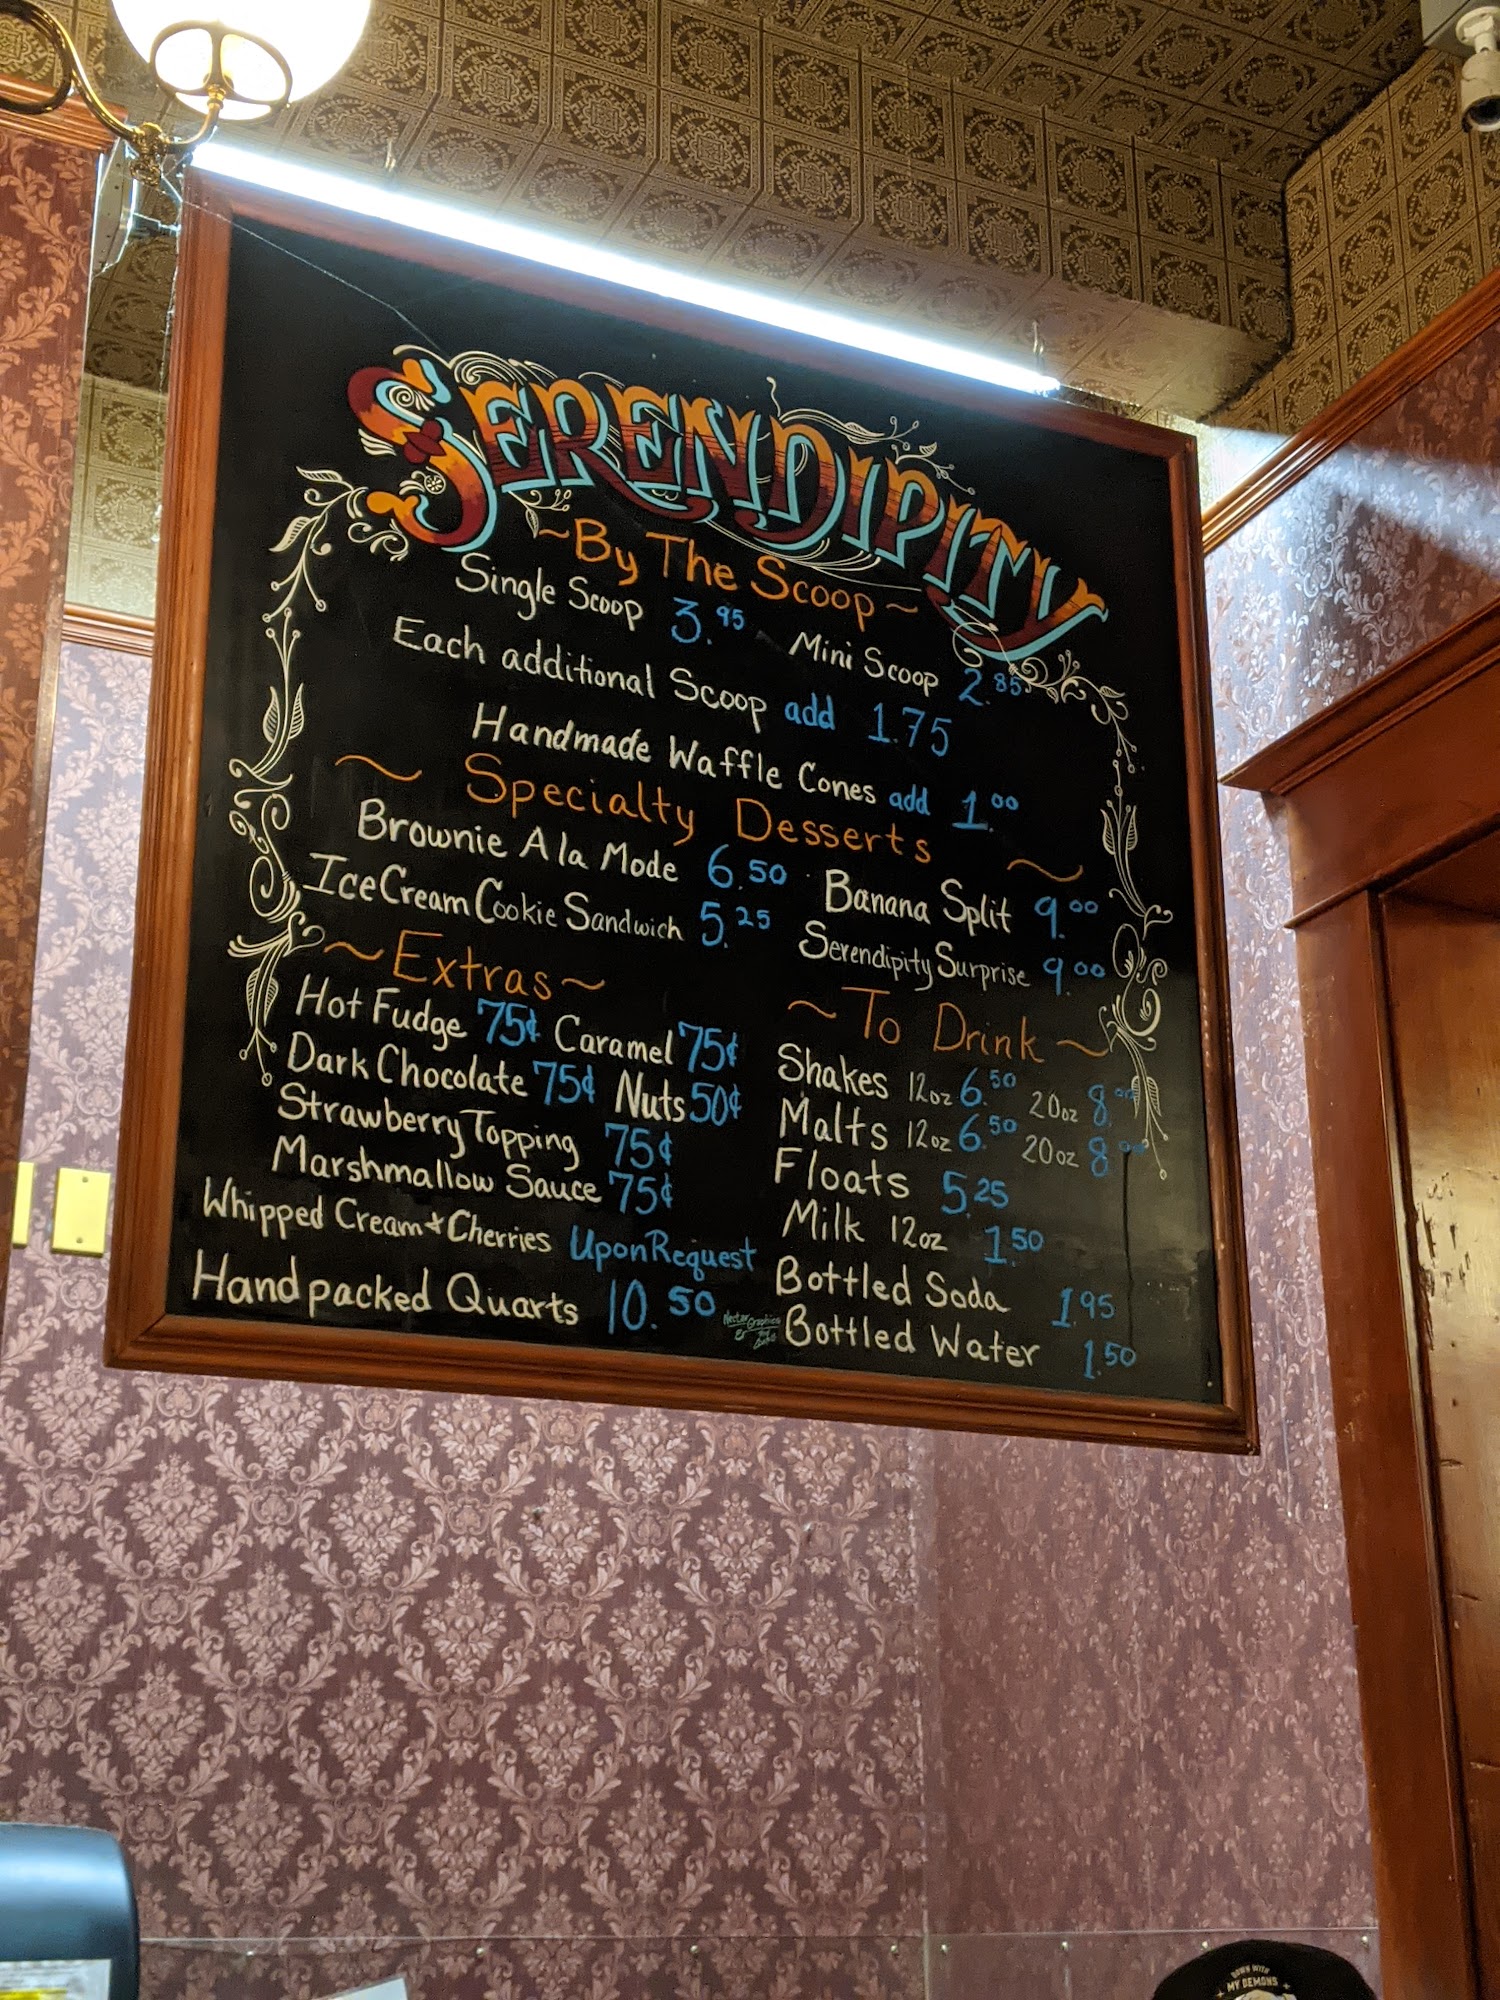 SERENDIPITY
~By The Scoop~
Single Scoop 3.95 Mini Scoop 2.85
Each additional Scoop add 1.75
Handmade Waffle Cones add 1.00
~ Specialty Desserts ~
Brownie A la Mode 6.50 Banana Split 9.00
Ice Cream Cookie Sandwich 5.25 Serendipity Surprise 9.00
~Extras~
Hot Fudge 75¢ Caramel 75¢
Dark Chocolate 75¢ Nuts 50¢
Strawberry Topping 75¢
Marshmallow Sauce 75¢
Whipped Cream & Cherries Upon Request
Hand packed Quarts 10.50
Nectar Graphics
&
~To Drink~
Shakes 12oz 6.50 20oz 8.00
Malts 12oz 6.50 20oz 8.00
Floats 5.25
Milk 12oz 1.50
Bottled Soda 1.95
Bottled Water 1.50
DOWN WITH
MY DEMONS